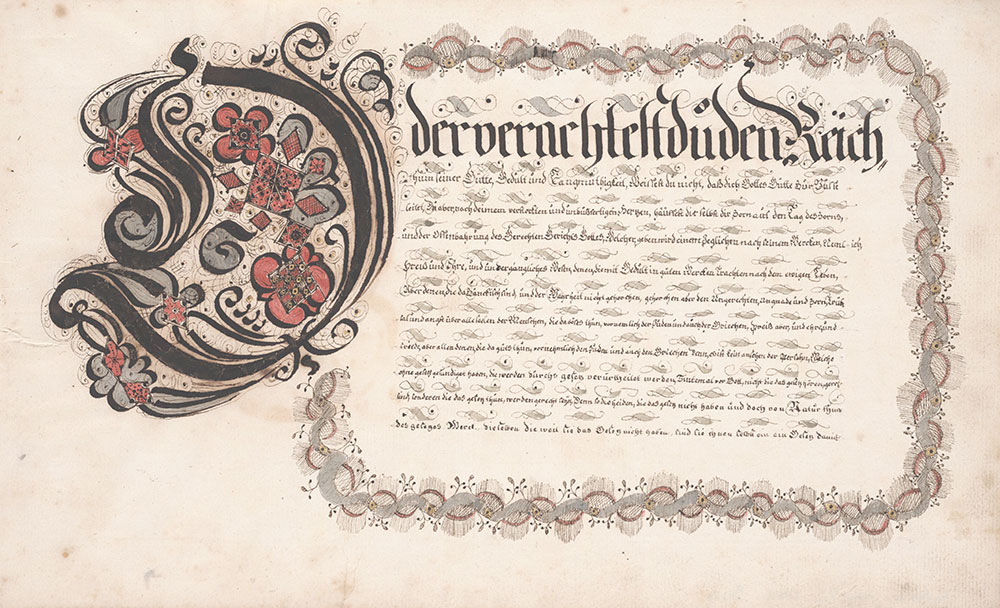 Oder verachtest du den Reich
thum seiner Gütte, Gedult und Langmuthigkeit, Weistest du nicht, daß dich Gottes Gütte zur Büse
leitet, Du aber, nach deinem verstockten und unbusfertigen herzen, häuffest dir selbst dir Zorn auf den Tag des Zorns,
und der Offenbahrung des Gerechten Gerichts Gottes, Welcher geben wird einem Jeglichen nach seinem Wercken, Neml-ich
Preis und Ehre, und unvergängliches Wesen, denen, die mit Gedult in guten Wercken Trachten nach dem ewigen Leben,
Aber denen, die da Zänckisch sind, und der Wahrheit nicht gehorchen, gehorchen aber den Ungerechten, Ungnade und Zorn, Trüb
sal und angst über alle seelen der Menschen, die da böses thun, vornemlich der Juden und auch der Griechen, Preis aber, und ehre, und
friede, aber allen denen, die da guts thun, vornehmlich den Juden und auch den Griechen Denn, es ist kein ansehen der Persohn, Welche
ohne gesetz gesündiget haben, die werden durchs gesetz verurtheilet werden Sintemal vor Gott, nicht die das gesetz hören, gerecht
sind, sonderen die das gesetz thun, werden gerecht seyn, Denn so die heiden, die das gesetz nicht haben und doch von Natur thun
des gesetzes Werck, dieselben die weil sie das Gesetz nicht haben, sind sie ihnen selbst ein Gesetz damit